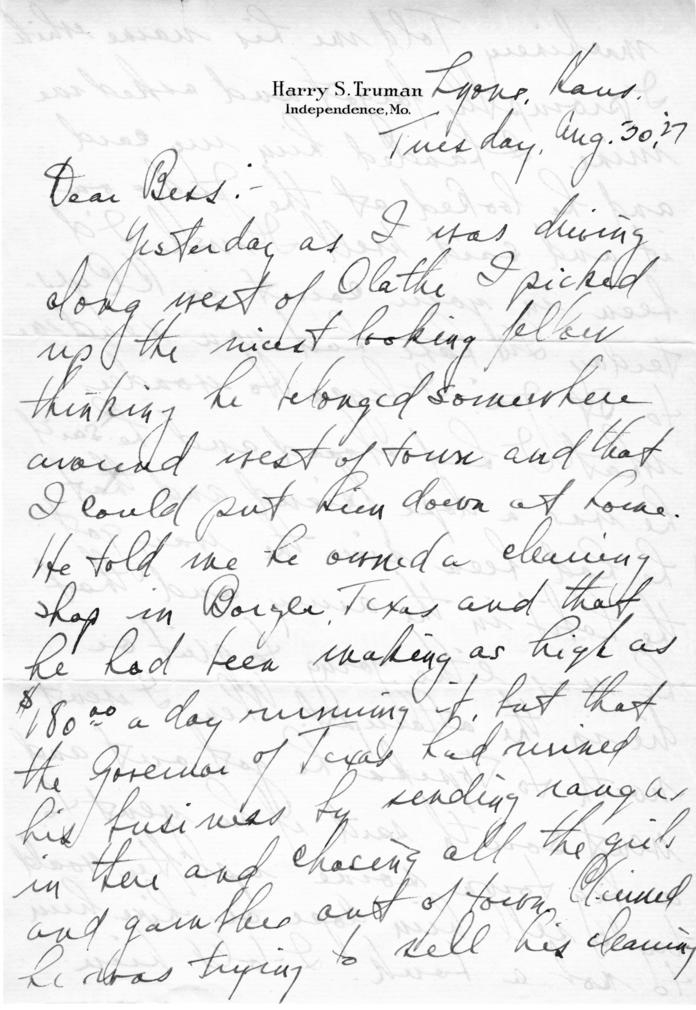 Harry S. Truman
Independence, Mo.
Lyons, Kans.
Tuesday, Aug. 30, '27
Dear Bess:-
Yesterday as I was driving
along west of Olathe I picked
up the nicest looking fellow
thinking he belonged somewhere
around west of town and that
I could put him down at home.
He told me he owned a cleaning
shop in Borger, Texas and that
he had been making as high as
$180.00 a day running it, but that
the Governor of Texas had ruined
his business by sending rangers
in there and chasing all the girls
and gamblers out of town. Claimed
he was trying to sell his cleaning